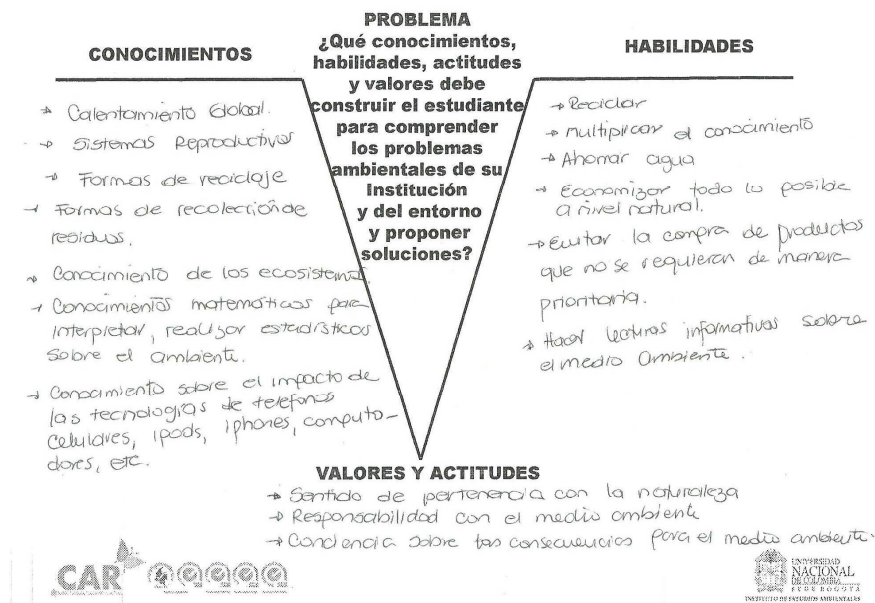 PROBLEMA
¿Qué conocimientos,
habilidades, actitudes
y valores debe
construir el estudiante
para comprender
los problemas
ambientales de su
Institución
y del entorno
y proponer
soluciones?
CONOCIMIENTOS
→ Calentamiento Global.
→ Sistemas Reproductivos
→ Formas de reciclaje
→ Formas de recolección de
residuos.
→ Conocimiento de los ecosistemas.
→ Conocimientos matemáticos para
interpretar, realizar estadísticas
sobre el ambiente.
→ Conocimiento sobre el impacto de
las tecnologías de telefonos
celulares, ipods, iphones, computa-
dores, etc.
HABILIDADES
→ Reciclar
→ multiplicar el conocimiento
→ Ahorrar agua
→ Economizar todo lo posible
a nivel natural.
→ Evitar la compra de productos
que no se requieran de manera
prioritaria.
→ Hacer lecturas informativas sobre
el medio Ambiente.
VALORES Y ACTITUDES
→ Sentido de pertenencia con la naturaleza
→ Responsabilidad con el medio ambiente
→ Conciencia sobre las consecuencias para el medio ambiente.
CAR
UNIVERSIDAD
NACIONAL
DE COLOMBIA
SEDE BOGOTÁ
INSTITUTO DE ESTUDIOS AMBIENTALES